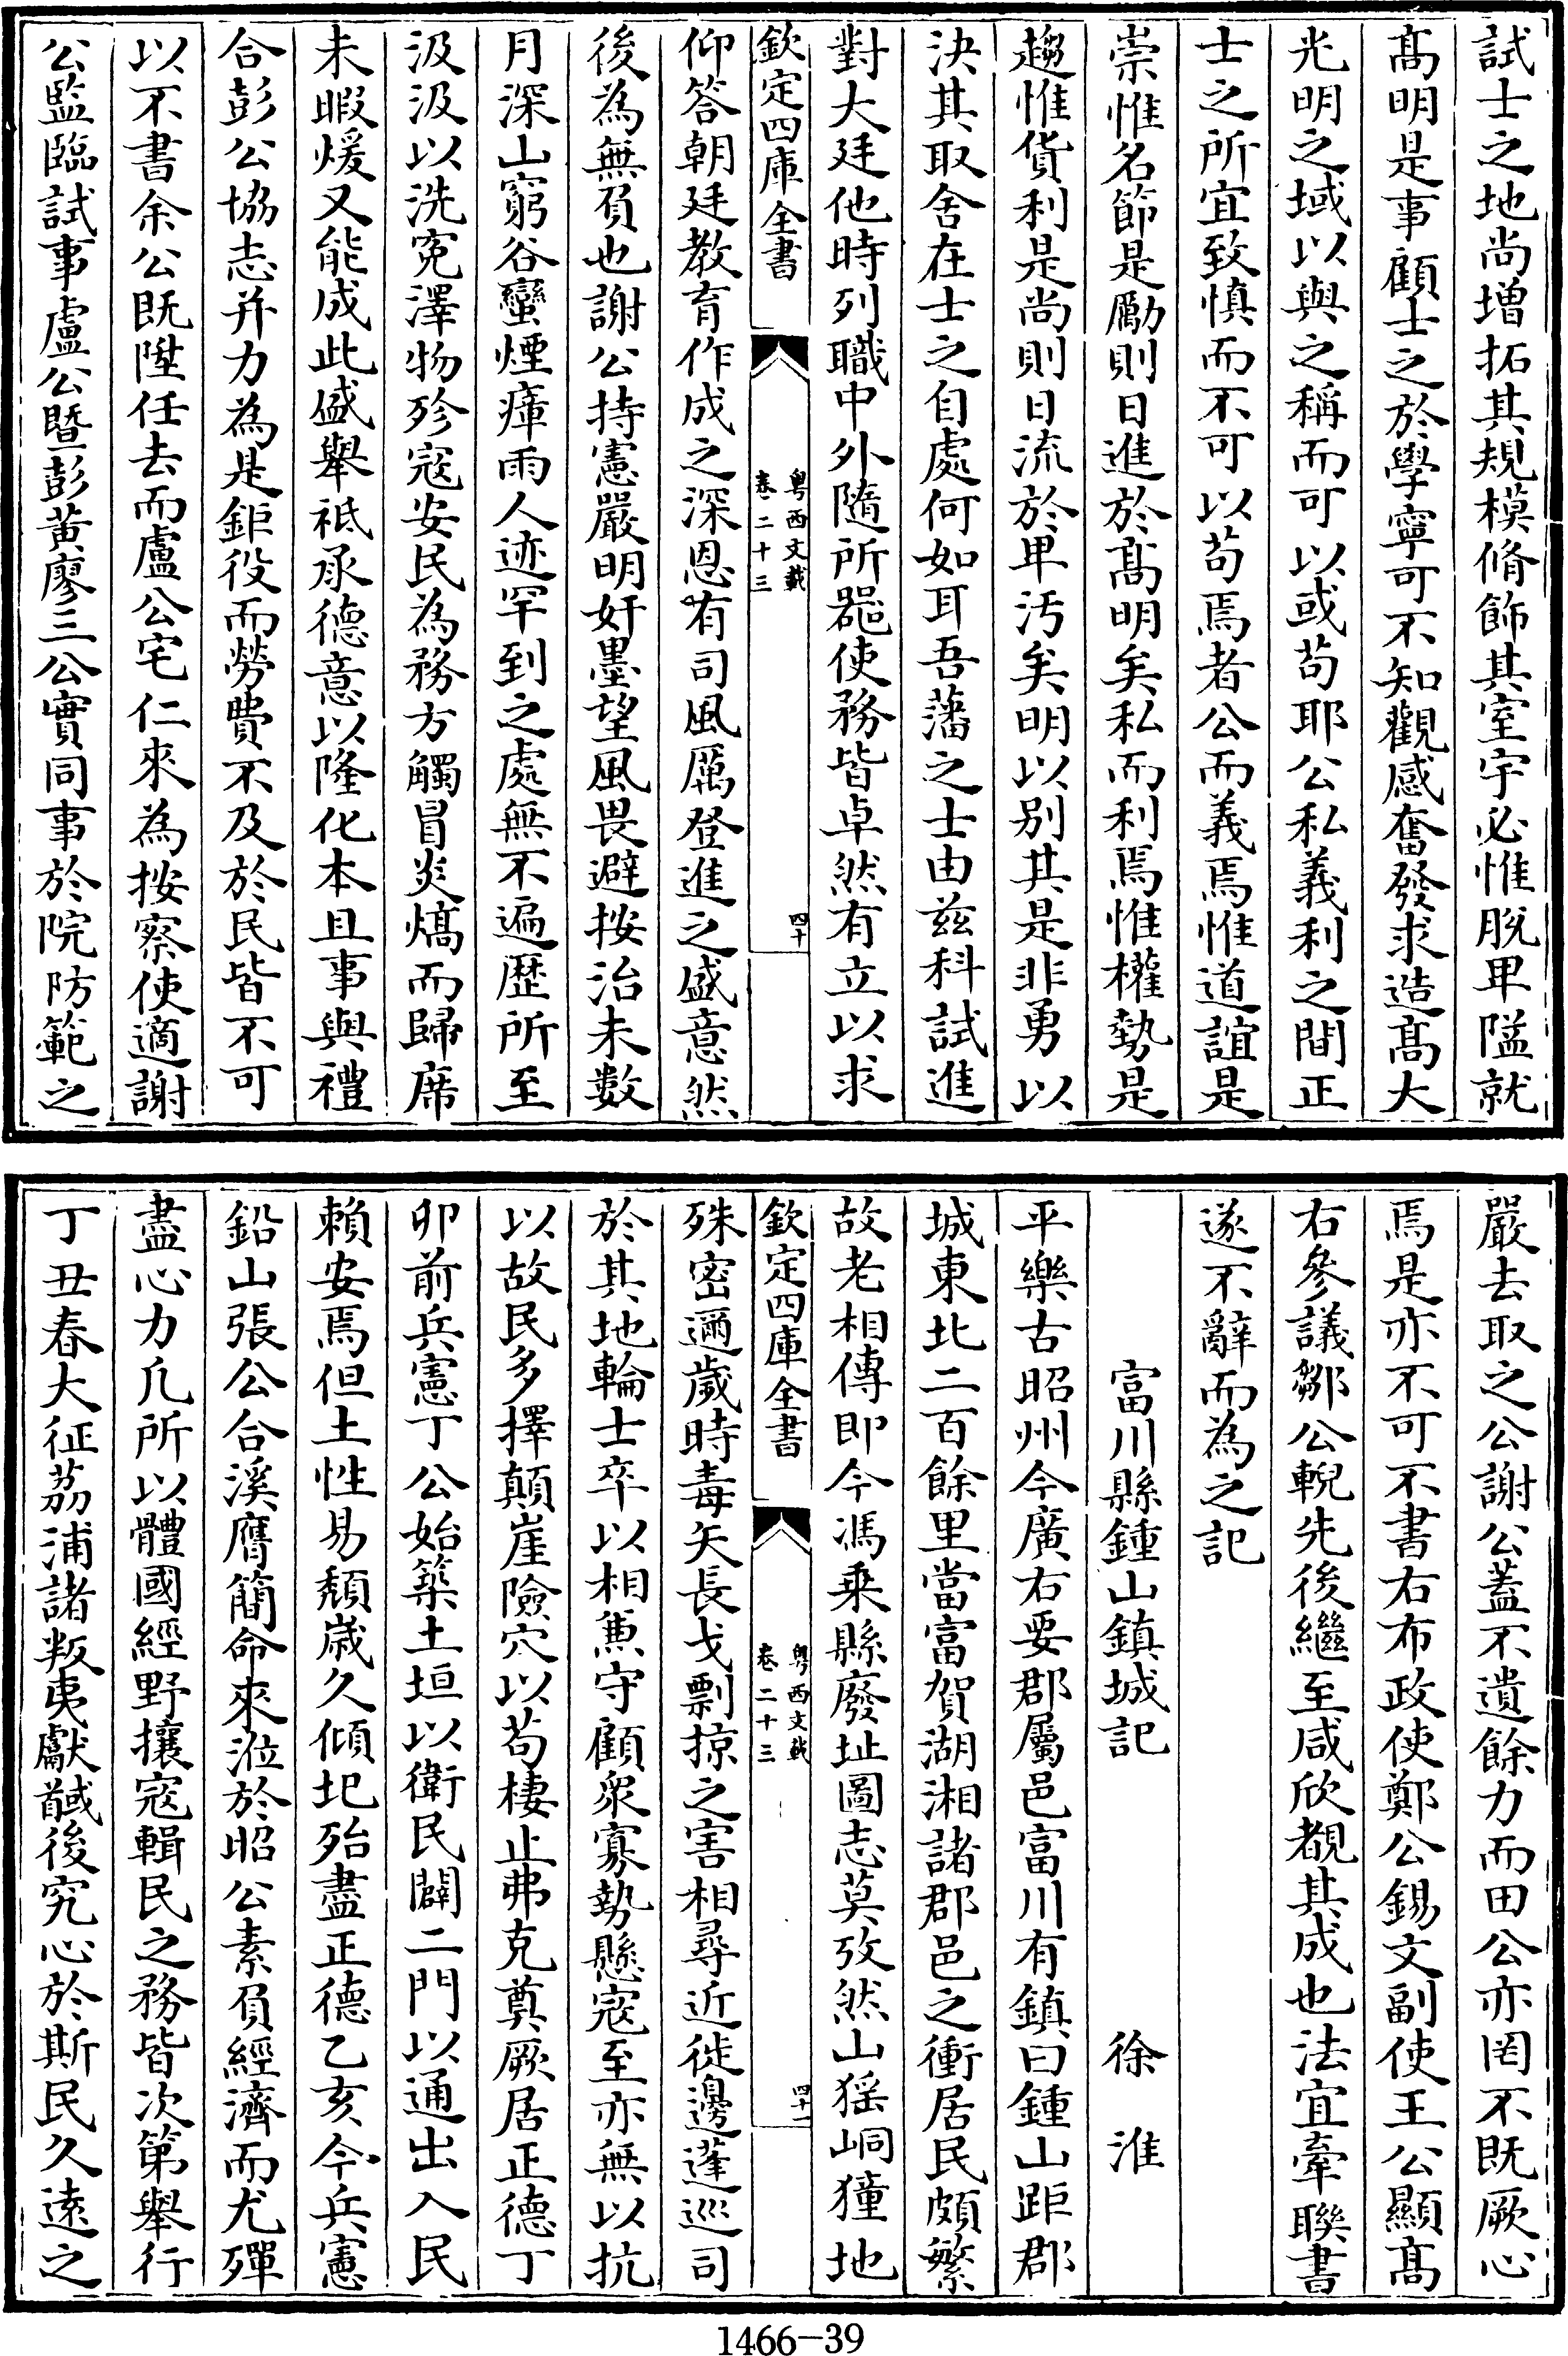 試士之地尚增拓其規模脩飾其室宇必惟脫卑隘就
髙明是事顧士之於學寧可不知觀感奮發求造髙大
光明之域以與之稱而可以或苟耶公私義利之間正
士之所宜致慎而不可以苟焉者公而義焉惟道誼是
崇惟名節是勵則日進於髙明矣私而利焉惟權勢是
趨惟貨利是尚則日流於卑汚矣明以别其是非勇以
決其取舍在士之自處何如耳吾藩之士由兹科試進
對大廷他時列職中外隨所器使務皆卓然有立以求
欽定四庫全書
粤西文載
卷二十三
四十
仰答朝廷教育作成之深恩有司風厲登進之盛意然
後為無負也謝公持憲嚴明奸墨望風畏避按治未數
月深山窮谷蠻煙瘴雨人迹罕到之處無不遍歴所至
汲汲以洗寃澤物殄寇安民為務方觸冒炎熇而歸席
未暇煖又能成此盛舉祗承德意以隆化本且事與禮
合彭公協志并力為是鉅役而勞費不及於民皆不可
以不書余公既陞任去而盧公宅仁來為按察使適謝
公監臨試事盧公暨彭黄廖三公實同事於院防範之
嚴去取之公謝公蓋不遺餘力而田公亦罔不既厥心
焉是亦不可不書右布政使鄭公錫文副使王公顯髙
右參議鄒公輗先後繼至咸欣覩其成也法宜牽聯書
遂不辭而為之記
富川縣鍾山鎮城記
徐淮
平樂古昭州今廣右要郡屬邑富川有鎮曰鍾山距郡
城東北二百餘里當富賀湖湘諸郡邑之衝居民頗繁
故老相傳即今馮乗縣廢址圖志莫攷然山猺峒獞地
欽定四庫全書
粤西文載
卷二十三
四十一
殊密邇歲時毒矢長戈剽掠之害相尋近徙邊蓬巡司
於其地輪士卒以相兼守顧衆寡勢懸寇至亦無以抗
以故民多擇顛崖險穴以苟棲止弗克奠厥居正德丁
卯前兵憲丁公始築土垣以衛民闢二門以通出入民
賴安焉但土性易頽嵗久傾圯殆盡正德乙亥今兵憲
鉛山張公合溪膺簡命來涖於昭公素負經濟而尤殫
盡心力凡所以體國經野攘寇輯民之務皆次第舉行
丁丑春大征茘浦諸叛夷獻馘後究心於斯民久逺之
1466-39